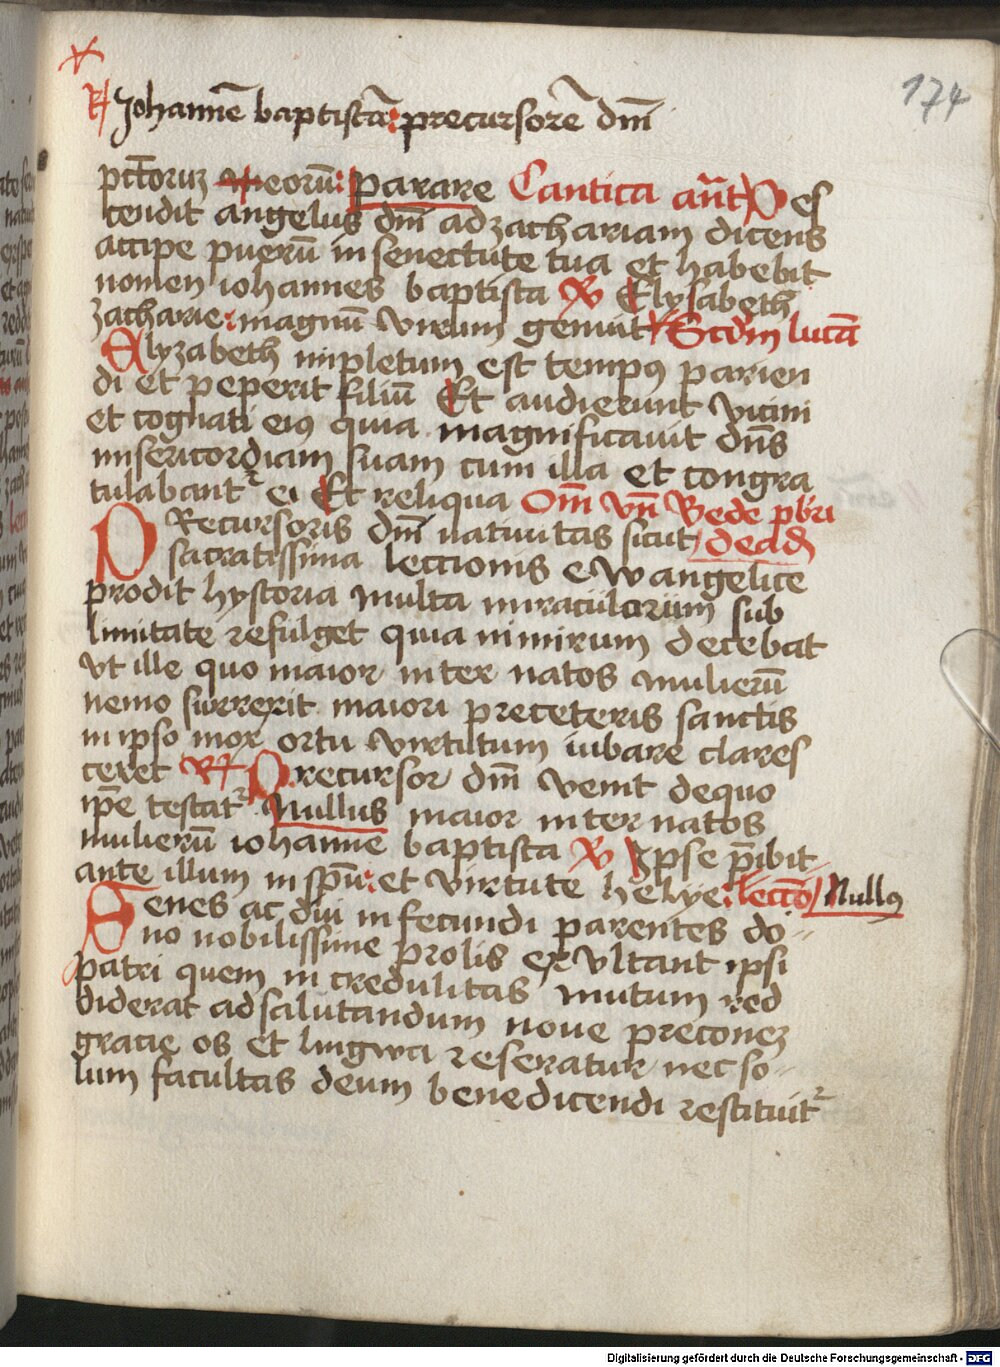 174
℟ Johannē baptistā: precursorē dn̄i
pctoruz eorū: parare Cantica an̄t Oes
tendit angelus dn̄i ad zachariam dicens
accipe puerū in senectute tua et habebit
nomen iohannes baptista ℣ Elysabeth
zacharie: magnū virum genuit Scd̄m lucā
Elyzabeth inpletum est tempꝯ parien
di et peperit filiū Et audierunt vicini
et cognati eiꝯ quia magnificauit dn̄s
misericordiam suam cum illa et congra
tulabant᷑ ei Et reliqua Om̄ vn̄ Bede pb̄ri
PRecursoris dn̄i natiuitas sicut de ead
sacratissima leccionis ewangelice
prodit hystoria multa miraculorum sub
limitate refulget quia nimirum decebat
vt ille quo maior inter natos mulierū
nemo surrexit maiori pre ceteris sanctis
in ipso mox ortu virtutum iubare clares
ceret ℟ Precursor dn̄i venit de quo
ip̄e testat᷑ Nullus maior inter natos
mulierū iohanne baptista ℣ Ipse p̄ibit
ante illum in sp̄u: et virtute helye: lecc̄o Nullꝯ
Senes ac diu infecundi parentes do
no nobilissime prolis exultant ipsi
patri quem incredulitas mutum red
diderat ad salutandum noue preconez
gracie os et lingwa reseratur nec so
lum facultas deum benedicendi restituit᷑
Digitalisierung gefördert durch die Deutsche Forschungsgemeinschaft - DFG